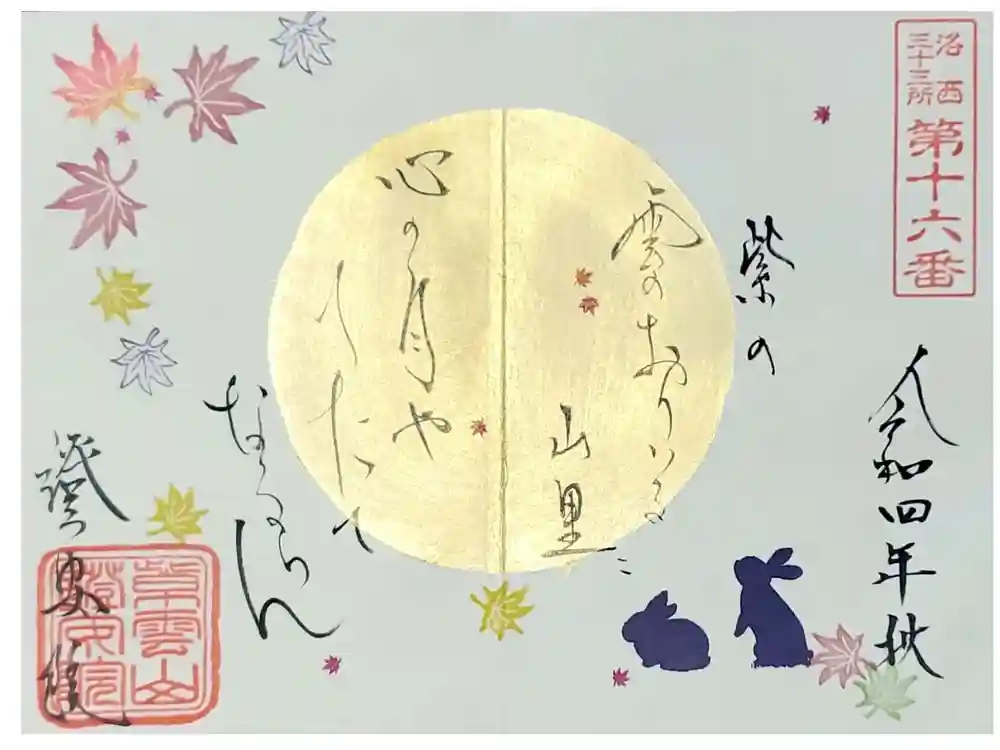 洛西
三十三所
第十六番
令和四年秋
紫の
雲のおりいる
山里に
心の月や
へたて
なからん
證安院
紫雲山
證安院